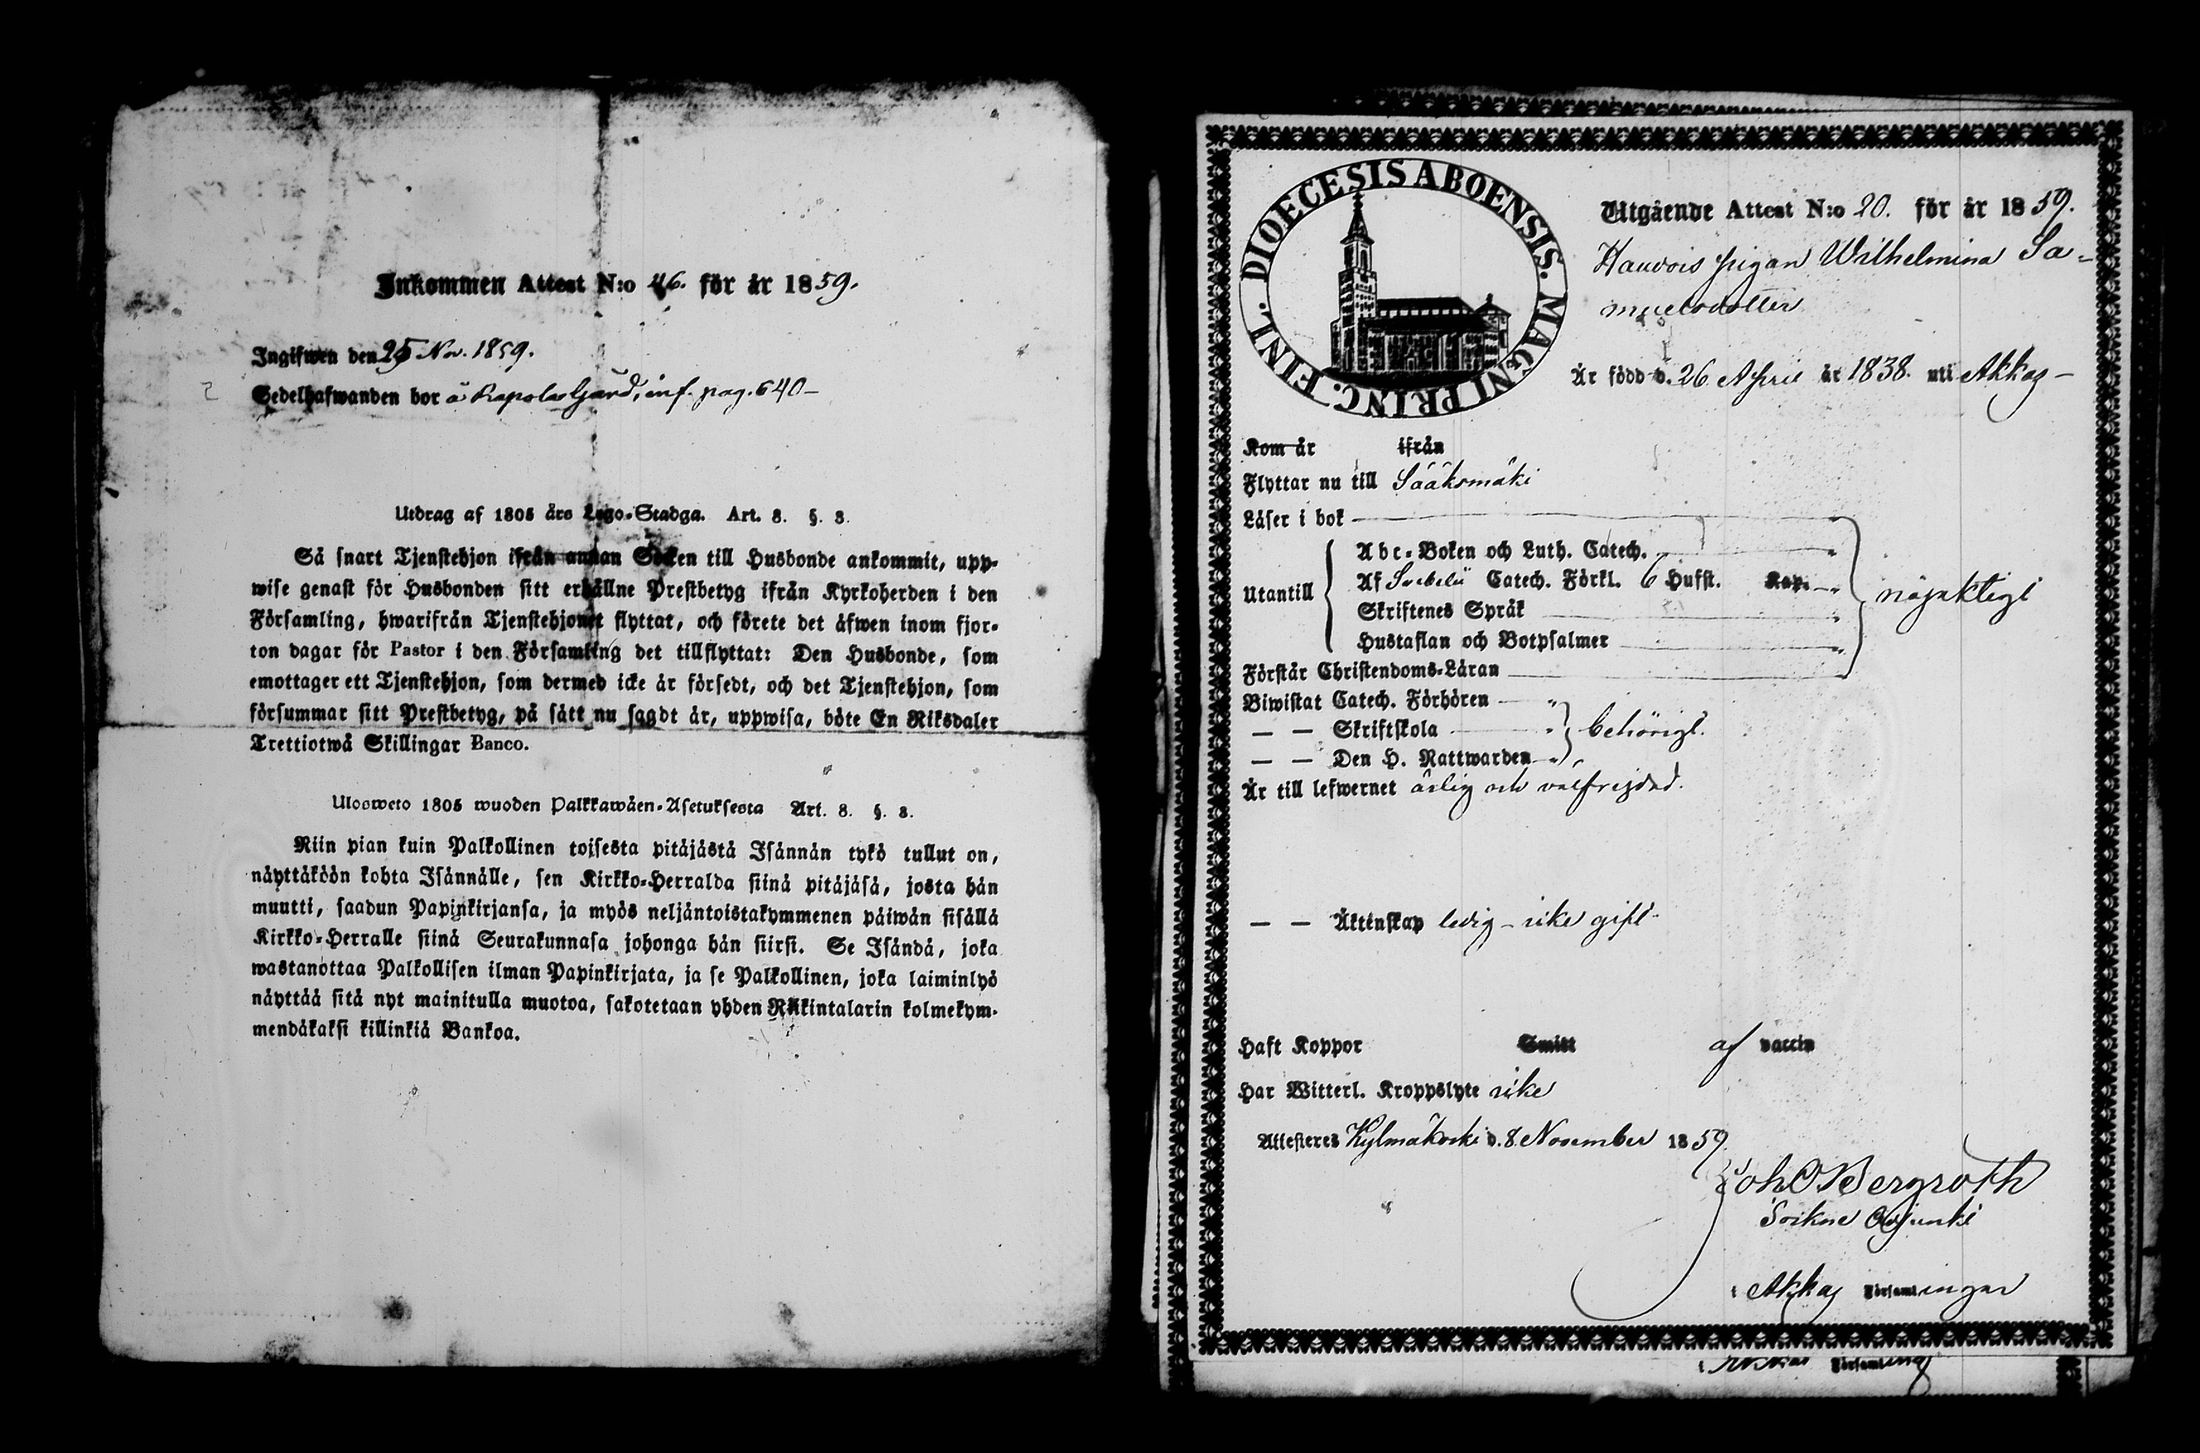 Inkommen Attest N:o 46. för år 1859.
Ingifwen den 25 Nov. 1859.
Sedelhafwanden bor å Rapola Gård, inf. pag. 640 –
Utdrag af 1805 års Lego-Stadga. Art. 8. §. 3.
Så snart Tjenstehjon ifrån annan Socken till Husbonde ankommit, upp-
wise genast för Husbonden sitt erhållne Prestbetyg ifrån Kyrkoherden i den
Församling, hwarifrån Tjenstehjonet flyttat, och förete det äfwen inom fjor-
ton dagar för Pastor i den Församling det tillflyttat: Den Husbonde, som
emottager ett Tjenstehjon, som dermed icke är försedt, och det Tjenstehjon, som
försummar sitt Prestbetyg, på sätt nu sagdt är, uppwisa, böte En Riksdaler
Trettiotwå Skillingar Banco.
Ulosweto 1805 wuoden Palkkawäen-Asetuksesta Art. 8. §. 3.
Niin pian kuin Palkollinen toisesta pitäjästä Isännän tykö tullut on,
näyttäköön kohta Isännälle, sen Kirkko-Herralda siinä pitäjäsä, josta hän
muutti, saadun Papinkirjansa, ja myös neljäntoistakymmenen päiwän sisällä
Kirkko-Herralle siinä Seurakunnasa johonga hän siirsi. Se Isändä, joka
wastanottaa Palkollisen ilman Papinkirjata, ja se Palkollinen, joka laiminlyö
näyttää sitä nyt mainitulla muotoa, sakotetaan yhden Riikintalarin kolmekym-
mendäkaksi killinkiä Bankoa.
DIOECESIS ABOENSIS. MAGNI PRINC. FINL.
Utgående Attest N:o 20. för år 1859.
pigan Wilhelmina Sa-
muelsdotter
Är född d. 26 April år 1838. uti Akkas –
Kom år ifrån
Flyttar nu till Sääksmäki
Läser i bok
Utantill
Abc-Boken och Luth. Catech.
Af Svebelii Catech. Förkl. 6 Hufst. Kap.
Skriftenes Språk
Hustaflan och Botpsalmer
nöjaktigt
Förstår Christendoms-Läran
Biwistat Catech. Förhören
— — Skriftskola
— — Den H. Nattwarden
behörigt.
Är till lefwernet ärlig och välfrejdad.
— — Äktenskap ledig – icke gift.
Haft Koppor Smitt af vaccin
Har Witterl. Kroppslyte icke
Attesteres Kylmäkoski d. 8 November 1859.
Joh O Bergroth
Sockne Adjunkt
i Akkas Församlingar
i Akkas Församling